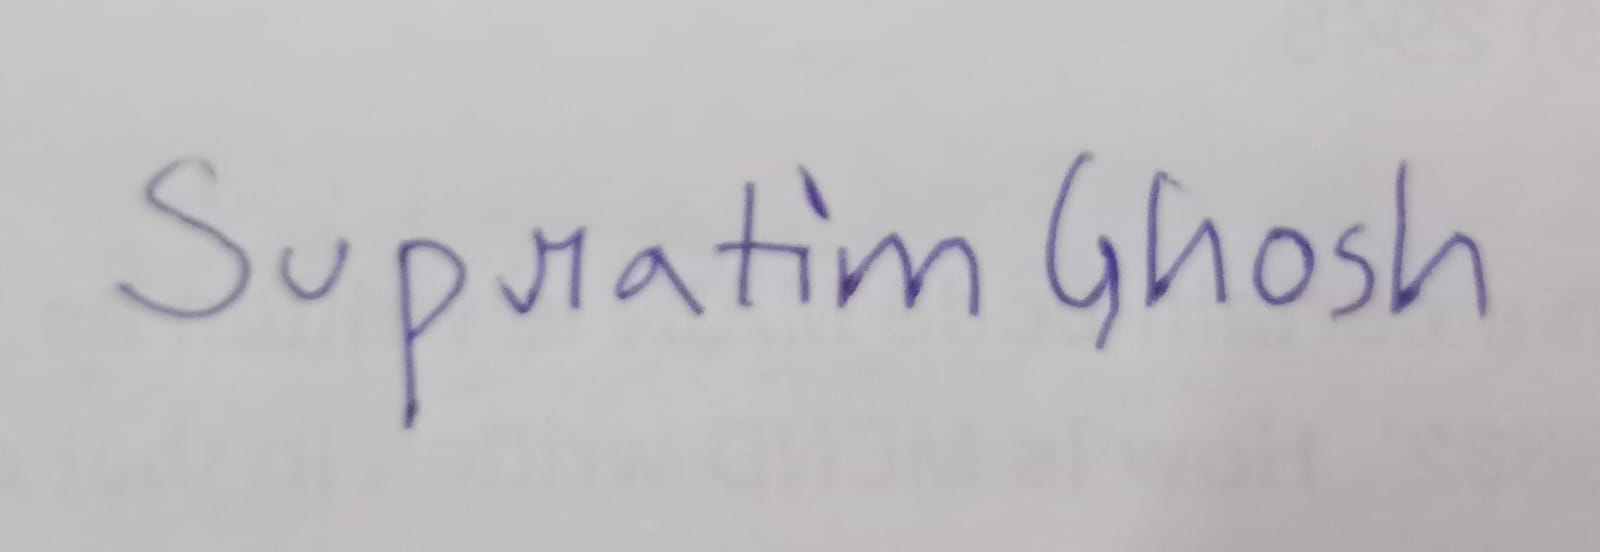 Supratim Ghosh